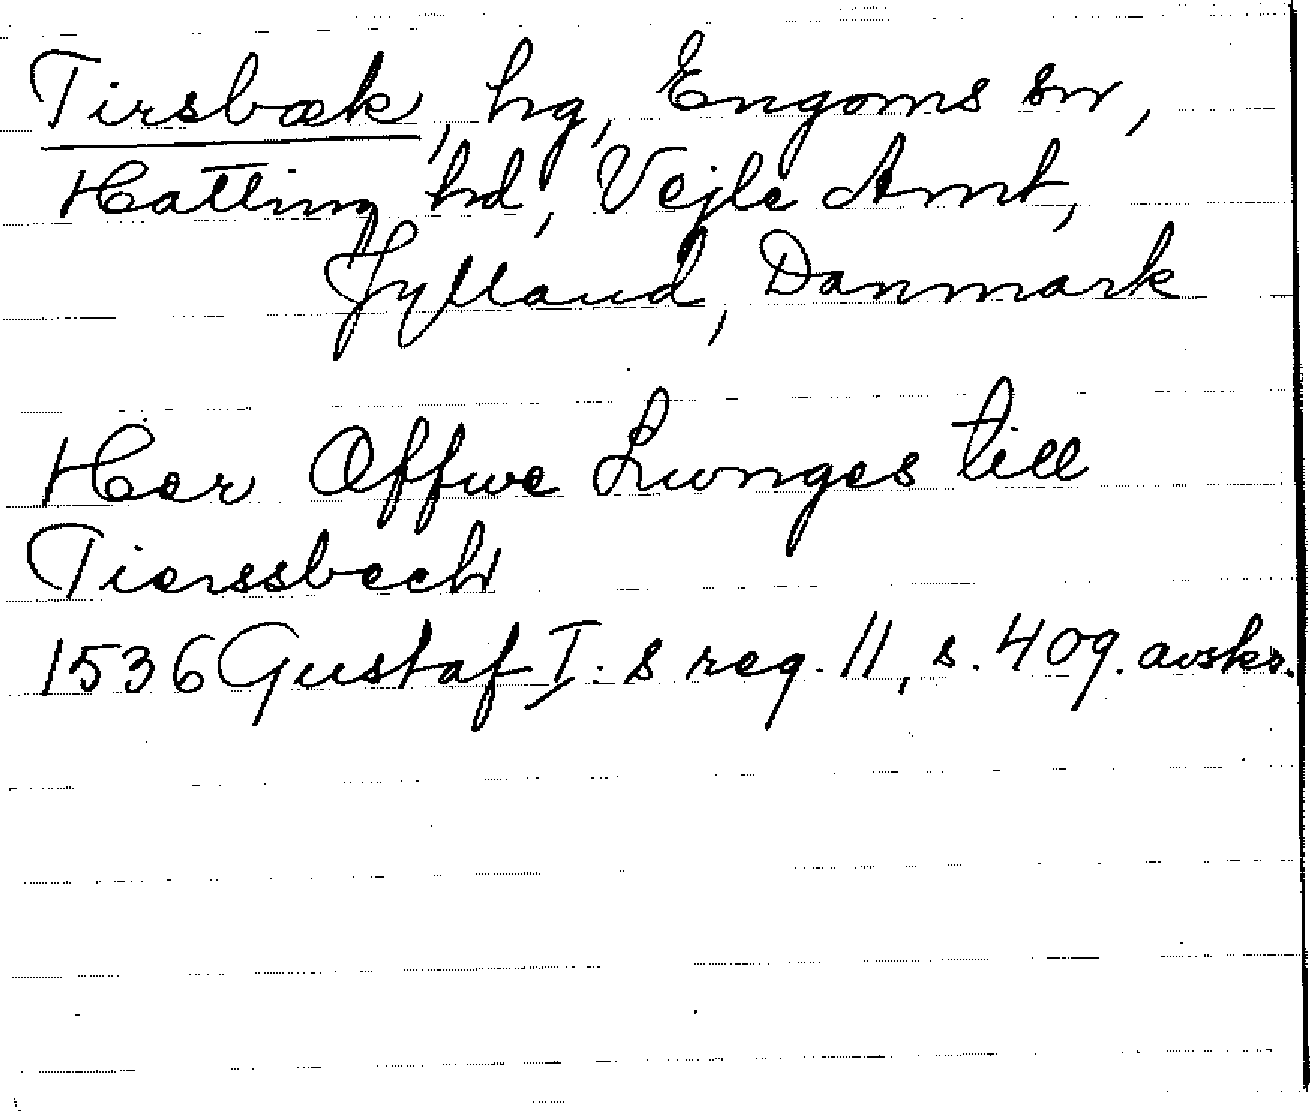 Tirsbæk, hg, Engoms sn,
Hatting hd, Vejle Amt,
Jylland, Danmark
Her Offwe Lwnges till
Tierssbech
1536 Gustaf I:s reg. 11, s. 409. avskr.